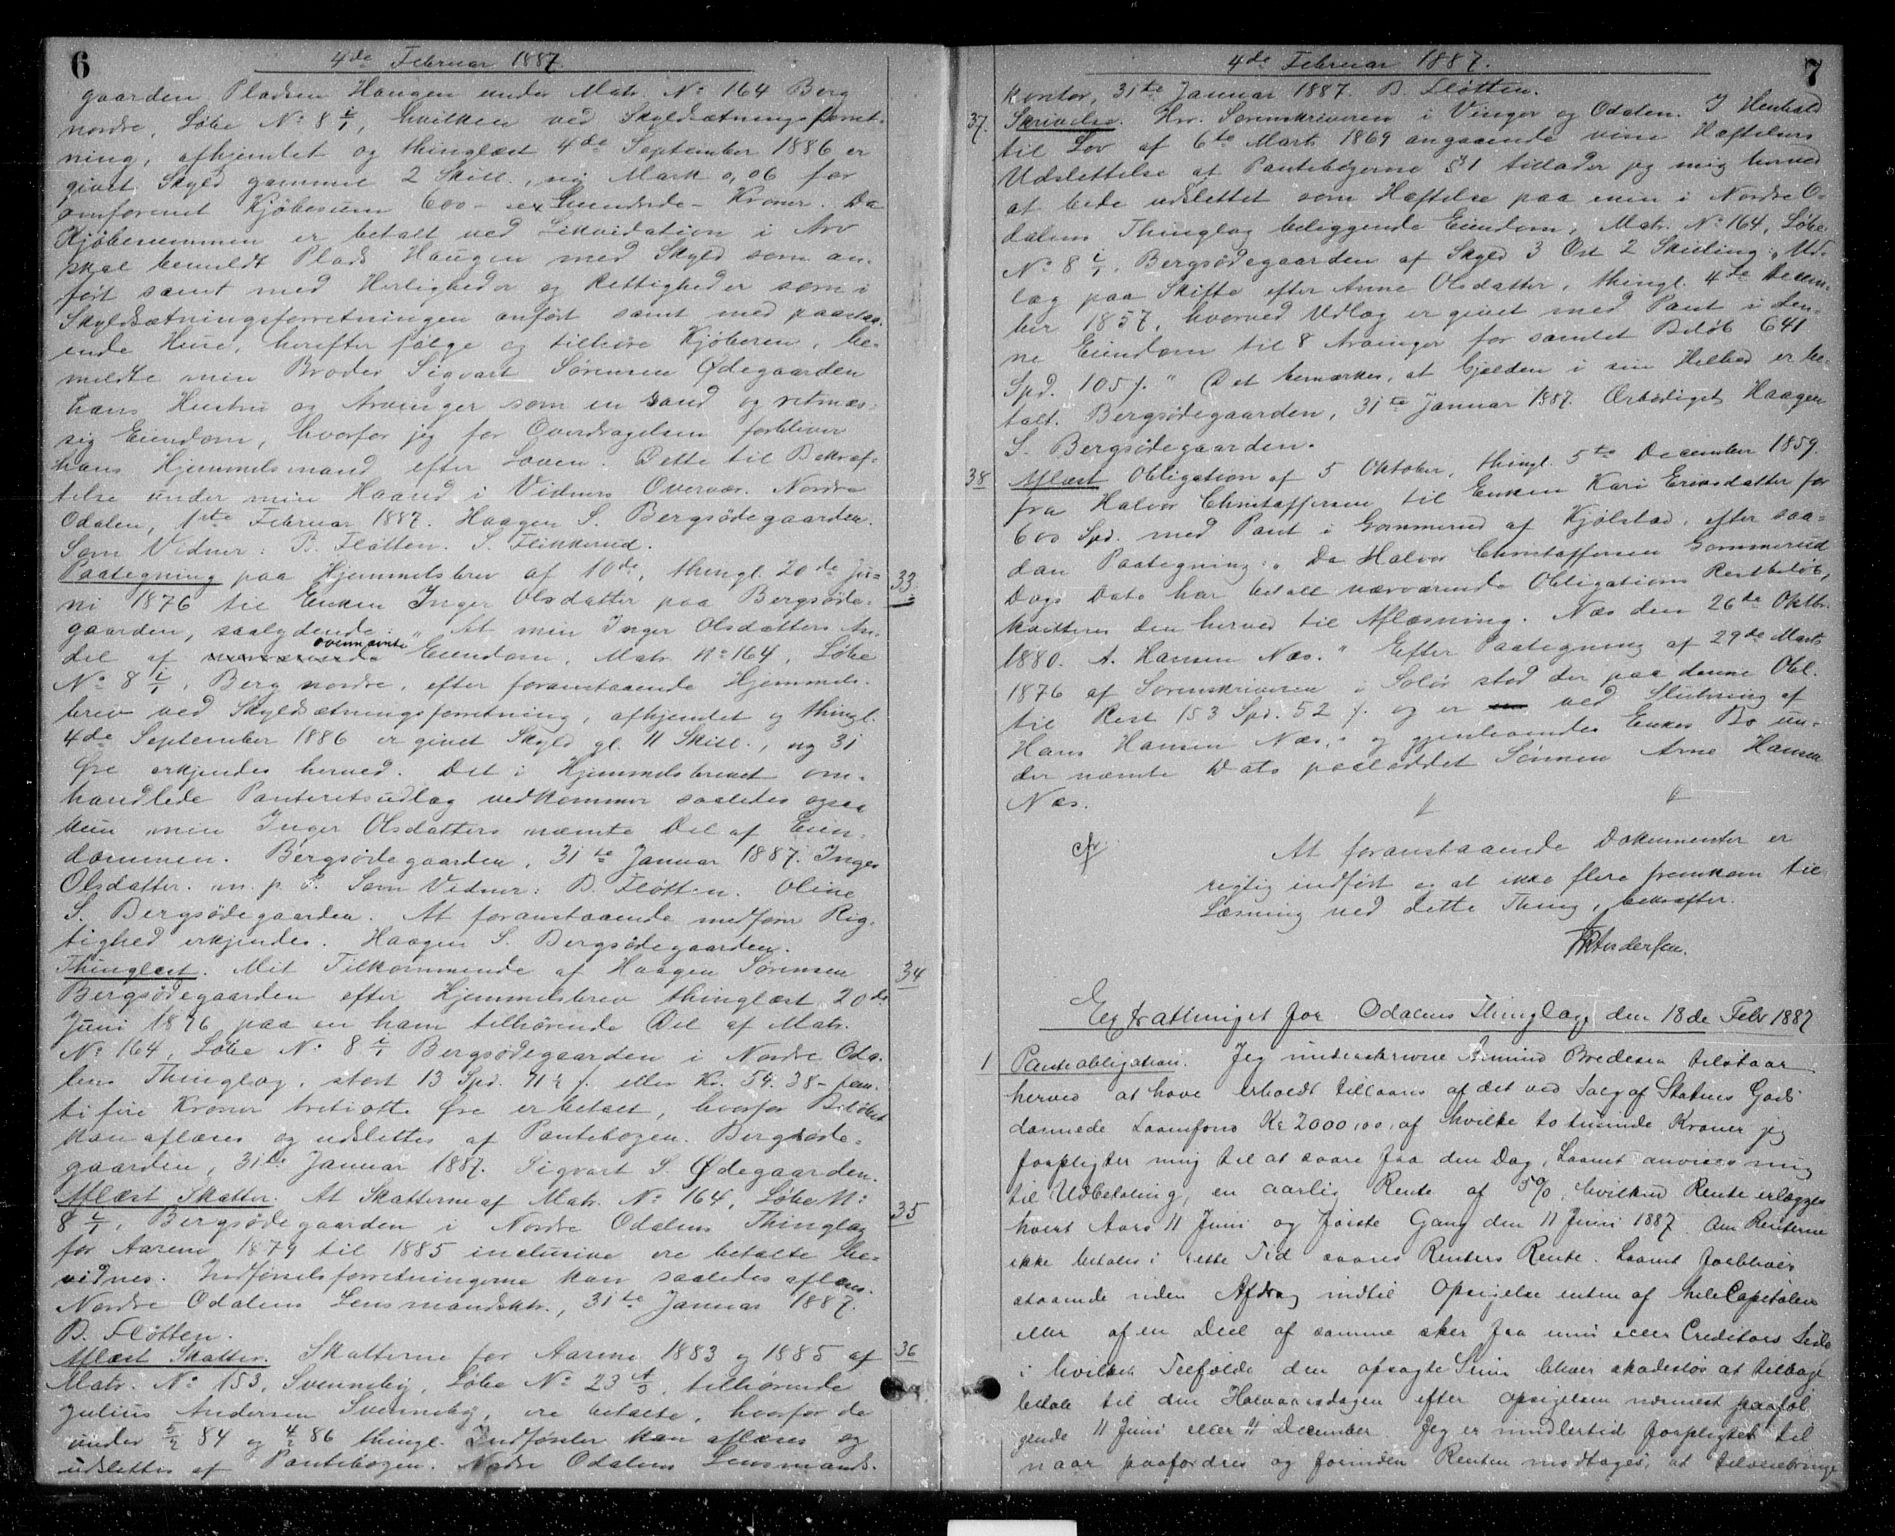 6
4de Februar 1887.
gaarden Pladsen Haugen under Matr. No 164 Berg
nordre, Løbe No 8 i/1, hvilken ved Skyldsætningsforret-
ning, afhjemlet og thinglæst 4de September 1886 er
givet Skyld gammel 2 Skill., ny Mark 0,06 for
omforenet Kjøbesum 600 – sex Hundrede – Kroner. Da
Kjøbesummen er betalt ved Likvidation i Arv
skal bemeldt Plads Haugen med Skyld som an-
ført samt med Herligheder og Rettigheder som i
Skyldsætningsforretningen anført samt med paastaa-
ende Huse, herefter følge og tilhøre Kjøberen, be-
meldte min Broder Sigvart Sørensen Ødegaarden
hans Hustru og Arvinger som en sand og retmæs-
sig Eiendom, hvorfor jeg for Overdragelsen forbliver
hans Hjemmelsmand efter Loven. Dette til Bekræf-
telse under min Haand i Vidners Overvær. Nordre
Odalen, 1ste Februar 1887. Haagen S. Bergsødegaarden.
Som Vidner: B. Fløtten. S. Flikkerud.
33. Paategning paa Hjemmelsbrev af 10de, thingl. 20de Ju-
ni 1876 til Enken Inger Olsdatter paa Bergsøde-
gaarden, saalydende: „At min Inger Olsdatters An-
del af ovennævnte Eiendom, Matr. No 164, Løbe
No 8 i/1, Berg nordre, efter foranstaaende Hjemmels-
brev ved Skyldsætningsforretning, afhjemlet og thingl.
4de September 1886 er givet Skyld gl. 11 Skill., ny 31
Øre erkjendes herved. Det i Hjemmelsbrevet om-
handlede Panteretsudlæg vedkommer saaledes ogsaa
kun min Inger Olsdatters nævnte Del af Eien-
dommen. Bergsødegaarden, 31te Januar 1887. Inger
Olsdatter. m. p. P. Som Vidner: B. Fløtten. Oline
S. Bergsødegaarden. At foranstaaende medfører Rig-
tighed erkjendes. Haagen S. Bergsødegaarden.
34 Thinglæst. Mit Tilkommende af Haagen Sørensen
Bergsødegaarden efter Hjemmelsbrev thinglæst 20de
Juni 1876 paa en ham tilhørende Del af Matr.
No 164, Løbe No 8 i/1 Bergsødegaarden i Nordre Oda-
lens Thinglag, stort 13 Spd. 71½ ſ. eller Kr. 54.38 – fem-
ti fire Kroner treti otte Øre er betalt, hvorfor Beløbet
kan aflæses og udslettes af Pantebogen. Bergsøde-
gaarden, 31te Januar 1887. Sigvart S. Ødegaarden.
35 Aflæst Skatter. At Skatterne af Matr. No 164, Løbe No
8 i/1, Bergsødegaarden i Nordre Odalens Thinglag
for Aarene 1879 til 1885 inclusive ere betalte be-
vidnes. Indførselsforretningerne kan saaledes aflæses.
Nordre Odalens Lensmandsktr., 31te Januar 1887.
B. Fløtten.
36 Aflæst Skatter. Skatterne for Aarene 1883 og 1885 af
Matr. No 153, Svenneby, Løbe No 23, tilhørende
Julius Andersen Svenneby, ere betalte, hvorfor de
under 5/2 84 og 4/2 86 thingl. Indførsler kan aflæses og
udslettes af Pantebogen. Nordre Odalens Lensmands-
7
4de Februar 1887.
kontor, 31te Januar 1887. B. Fløtten.
37. Skrivelse. Hrr. Sorenskriveren i Vinger og Odalen. I Henhold
til Lov af 6te Marts 1869 angaaende visse Hæftelsers
Udslettelse af Pantebøgerne § 1 tillader jeg mig herved
at bede udslettet som Hæftelse paa min i Nordre O-
dalens Thinglag beliggende Eiendom, Matr. No 164, Løbe
No 8 i/1, Bergsødegaarden af Skyld 3 Ort 2 Skilling: „Ud-
læg paa Skifte efter Anne Olsdatter, thingl. 4de Decem-
ber 1857, hvorved Udlæg er givet med Pant i den-
ne Eiendom til 8 Arvinger for samlet Beløb 641
Spd. 105 ſ." Det bemærkes, at Gjælden i sin Helhed er be-
talt. Bergsødegaarden, 31te Januar 1887. Ærbødigst Haagen
S. Bergsødegaarden.
38 Aflæst Obligation af 5 Oktober, thingl. 5te December 1859.
fra Halvor Christoffersen til Enken Kari Eriksdatter for
600 Spd. med Pant i Gommerud af Kjølstad, efter saa-
dan Paategning: „Da Halvor Christoffersen Gommerud
Dags Dato har betalt nærværende Obligations Restbeløb,
kvitteres den herved til Aflæsning. Næs den 26de Oktbr.
1880. A. Hansen Næs." Efter Paategning af 29de Marts
1876 af Sorenskriveren i Solør stod der paa denne Obl.
til Rest 153 Spd. 52 ſ. og er ved Slutning af
Hans Hansen Næs's og gjenlevendes Enkes Bo un-
der nævnte Dato paaløddet Sønnen Arne Hansen
Næs.
At foranstaaende Dokumenter er
rigtig indført og at ikke flere fremkom til
Læsning ved dette Thing, bekræfter.
Andersen.
Extrathinget for Odalens Thinglag den 18de Febr 1887
1 Panteobligation. Jeg underskrevne Amund Bredesen tilstaar
herved at have erholdt tillaans af det ved Salg af Statens Gods
dannede Laanefond Kr 2000,00, af hvilke to tusinde Kroner jeg
forpligter mig til at svare fra den Dag, Laanet anvises mig
til Udbetaling, en aarlig Rente af 5%, hvilken Rente erlægges
hvert Aars 11 Juni og første Gang den 11 Juni 1887. Om Renterne
ikke betales i rette Tid svares Renters Rente. Laanet forbliver
staaende uden Afdrag indtil Opsigelse enten af hele Capitalen
eller af en Deel af samme sker fra min eller Creditors Side
i hvilket Tilfælde den opsagte Sum bliver skadesløs at tilbage
betale til den Halvaarsdagen efter Opsigelsen nærmest paaføl
gende 11 Juni eller 11 December. Jeg er imidlertid forpligtet til
naar paafordres og forinden Renten modtages, at tilveiebringe